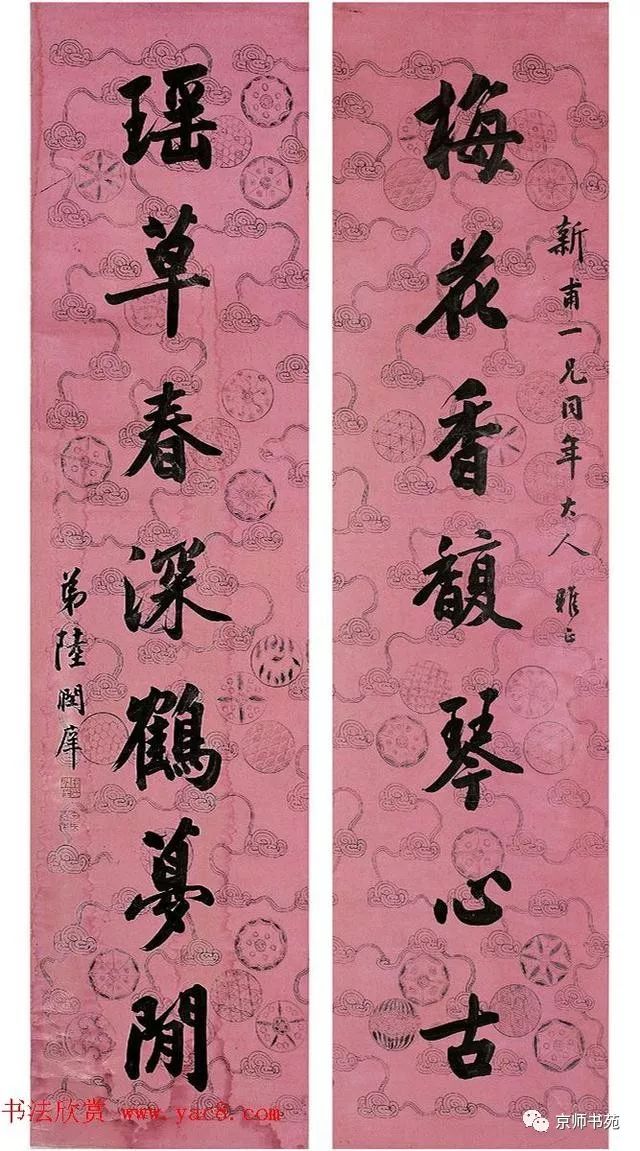 新甫一兄同年大人 雅正
梅花香馥琴心古
瑶草春深鶴夢閒
弟陸潤庠
书法欣赏 www.yac8.com
京师书苑